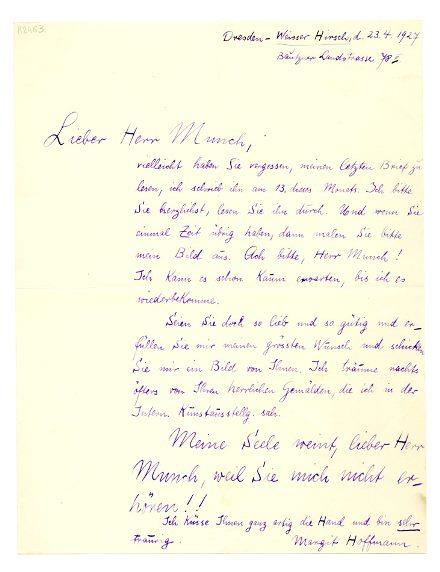 K2463
Dresden - Weisser Hirsch, d. 23.4.1927
Bautzner Landstrasse 78 II
Lieber Herr Munch,
vielleicht haben Sie vergessen, meinen letzten Brief zu
lesen, ich schrieb ihn am 13. dieses Monats. Ich bitte
Sie herzlichst, lesen Sie ihn durch. Und wenn Sie
einmal Zeit übrig haben, dann malen Sie bitte
mein Bild aus. Ach bitte, Herr Munch!
Ich kann es schon kaum erwarten, bis ich es
wiederbekomme.
Seien Sie doch so lieb und so gütig und er-
füllen Sie mir meinen grössten Wunsch und schicken
Sie mir ein Bild von Ihnen. Ich träume nachts
öfters von Ihren herrlichen Gemälden, die ich in der
Intern. Kunstausstellg. sah.
Meine Seele weint, lieber Herr
Munch, weil Sie mich nicht er-
hören!!
Ich küsse Ihnen ganz artig die Hand und bin sehr
traurig. Margit Hoffmann.